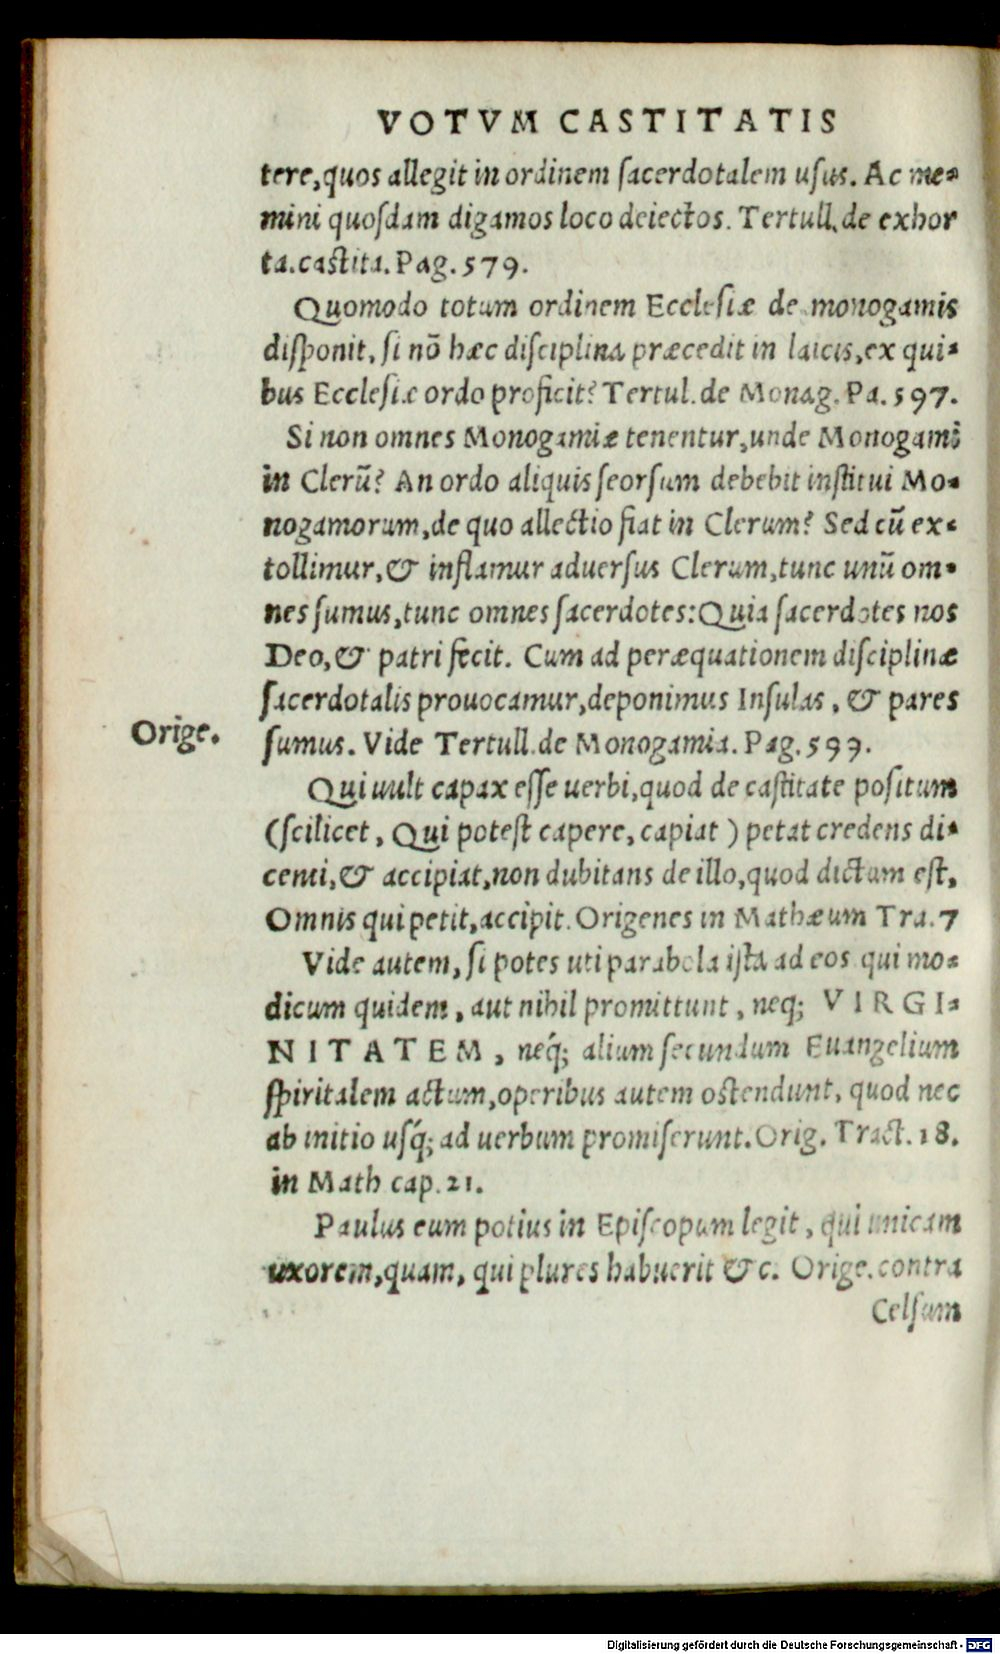 VOTVM CASTITATIS
tere, quos allegit in ordinem sacerdotalem usus. Ac me-
mini quosdam digamos loco deiectos. Tertull. de exhor
ta. castita. Pag. 579.
Quomodo totum ordinem Ecclesiæ de monogamis
disponit, si nō hæc disciplina præcedit in laicis, ex qui-
bus Ecclesiæ ordo proficit? Tertul. de Monag. Pa. 597.
Si non omnes Monogamiæ tenentur, unde Monogami
in Clerū? An ordo aliquis seorsum debebit institui Mo-
nogamorum, de quo allectio fiat in Clerum? Sed cū ex-
tollimur, & inflamur aduersus Clerum, tunc unū om-
nes sumus, tunc omnes sacerdotes: Quia sacerdotes nos
Deo, & patri fecit. Cum ad peræquationem disciplinæ
sacerdotalis prouocamur, deponimus Insulas, & pares
sumus. Vide Tertull. de Monogamia. Pag. 599.
Orige.
Qui uult capax esse uerbi, quod de castitate positum
(scilicet, Qui potest capere, capiat) petat credens di-
centi, & accipiat, non dubitans de illo, quod dictum est,
Omnis qui petit, accipit. Origenes in Mathæum Tra. 7
Vide autem, si potes uti parabola ista ad eos qui mo-
dicum quidem, aut nihil promittunt, neq; VIRGI-
NITATEM, neq́; alium secundum Euangelium
spiritalem actum, operibus autem ostendunt, quod nec
ab initio usq́; ad uerbum promiserunt. Orig. Tract. 18.
in Math cap. 21.
Paulus eum potius in Episcopum legit, qui unicam
uxorem, quam, qui plures habuerit &c. Orige. contra
Celsum
Digitalisierung gefördert durch die Deutsche Forschungsgemeinschaft - DFG